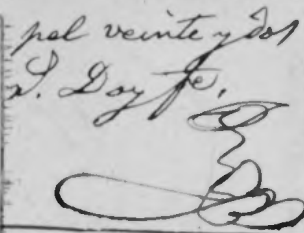 pal veinte y dos
S. Doy fe.